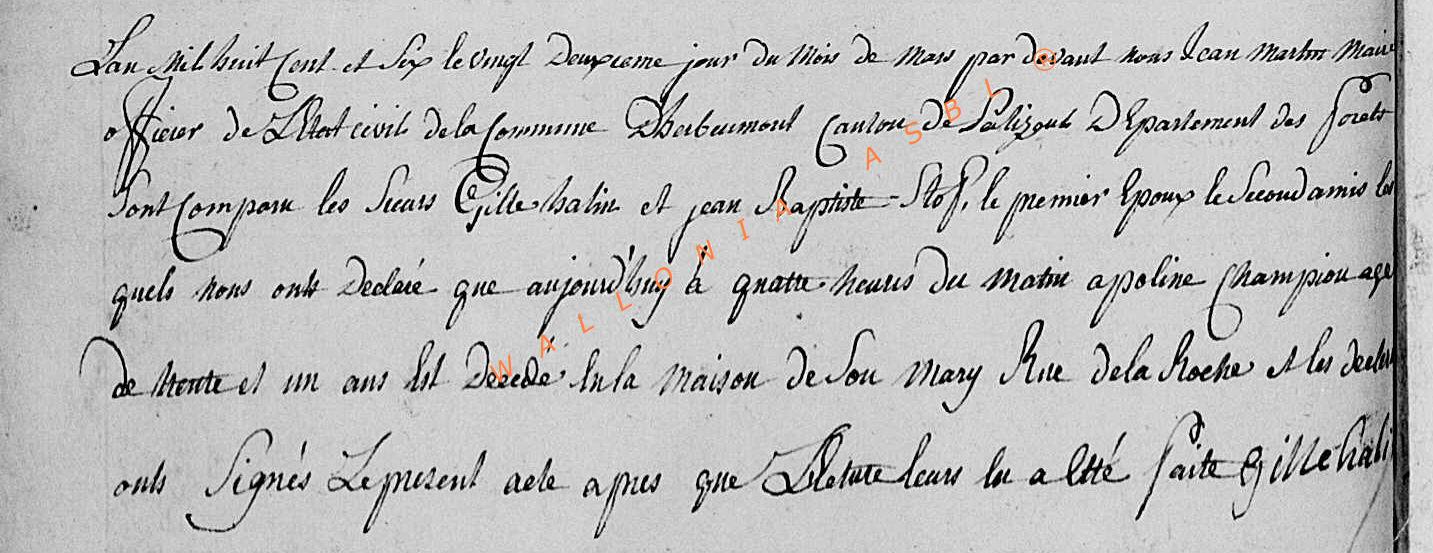 L'an Mil huit Cent et Six le vingt Deuxieme jour du Mois de Mars par devant nous Jean Martin Maire
officier de L'Etat civil de la Commune D'herbeumont Canton de Palizeul DEpartement des forets
Sont Comparu les Sieurs Gille halin et jean Baptiste Stof, le premier Epoux le Second amis les
quels nous onts Declaré que aujourd'huy à quattre heures du matin apoline Champion agé
de trente et un ans Est Decedé En la Maison de Son Mary Rue de la Roche et les declar
onts Signés Le present acte apres que Lecture leurs en a Eté faite Gille hali
WALLONIA ASBL ®